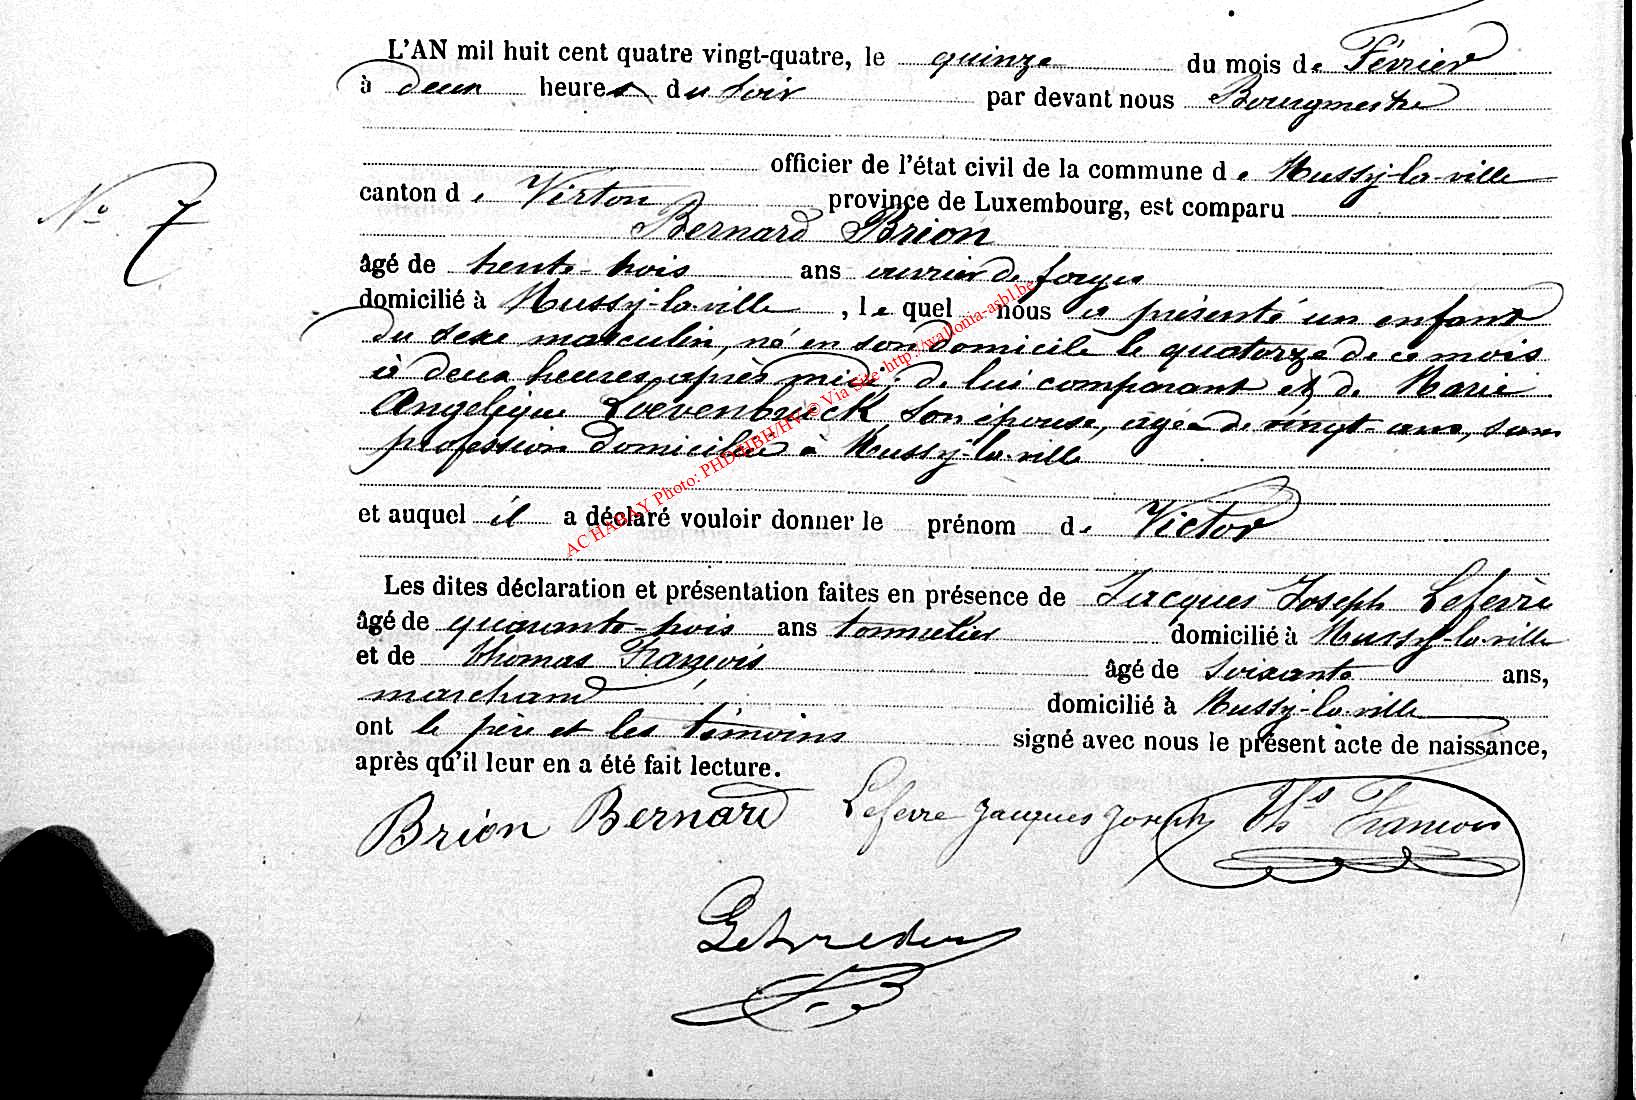 L'AN mil huit cent quatre vingt-quatre, le quinze du mois de Février
à deux heures du soir par devant nous Bourgmestre
officier de l'état civil de la commune de Mussy-la-ville
N° 7
canton de Virton province de Luxembourg, est comparu
Bernard Brion
âgé de trente-trois ans ouvrier de forges
domicilié à Mussy-la-ville, lequel nous a présenté un enfant
du sexe masculin, né en son domicile le quatorze de ce mois
à deux heures après midi, de lui comparant et de Marie
Angelique Loevenbruck son épouse, agée de vingt ans, sans
profession domiciliée à Mussy-la-ville
et auquel il a déclaré vouloir donner le prénom de Victor
Les dites déclaration et présentation faites en présence de Jacques Joseph Lefèvre
âgé de quarante-trois ans tonnelier domicilié à Mussy-la-ville
et de Thomas François âgé de soixante ans,
marchand domicilié à Mussy-la-ville
ont le père et les témoins signé avec nous le présent acte de naissance,
après qu'il leur en a été fait lecture.
Brion Bernard Lefevre Jacques Joseph Ths François
AC HABAY Photo: PHD/HBH/HV © Via Site http://wallonia-asbl.be